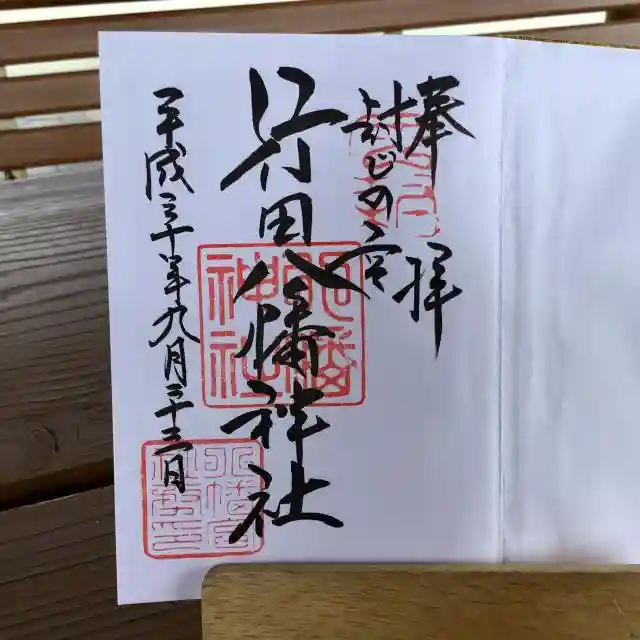 奉拝
封じの宮
行田八幡神社
平成三十年九月二十三日